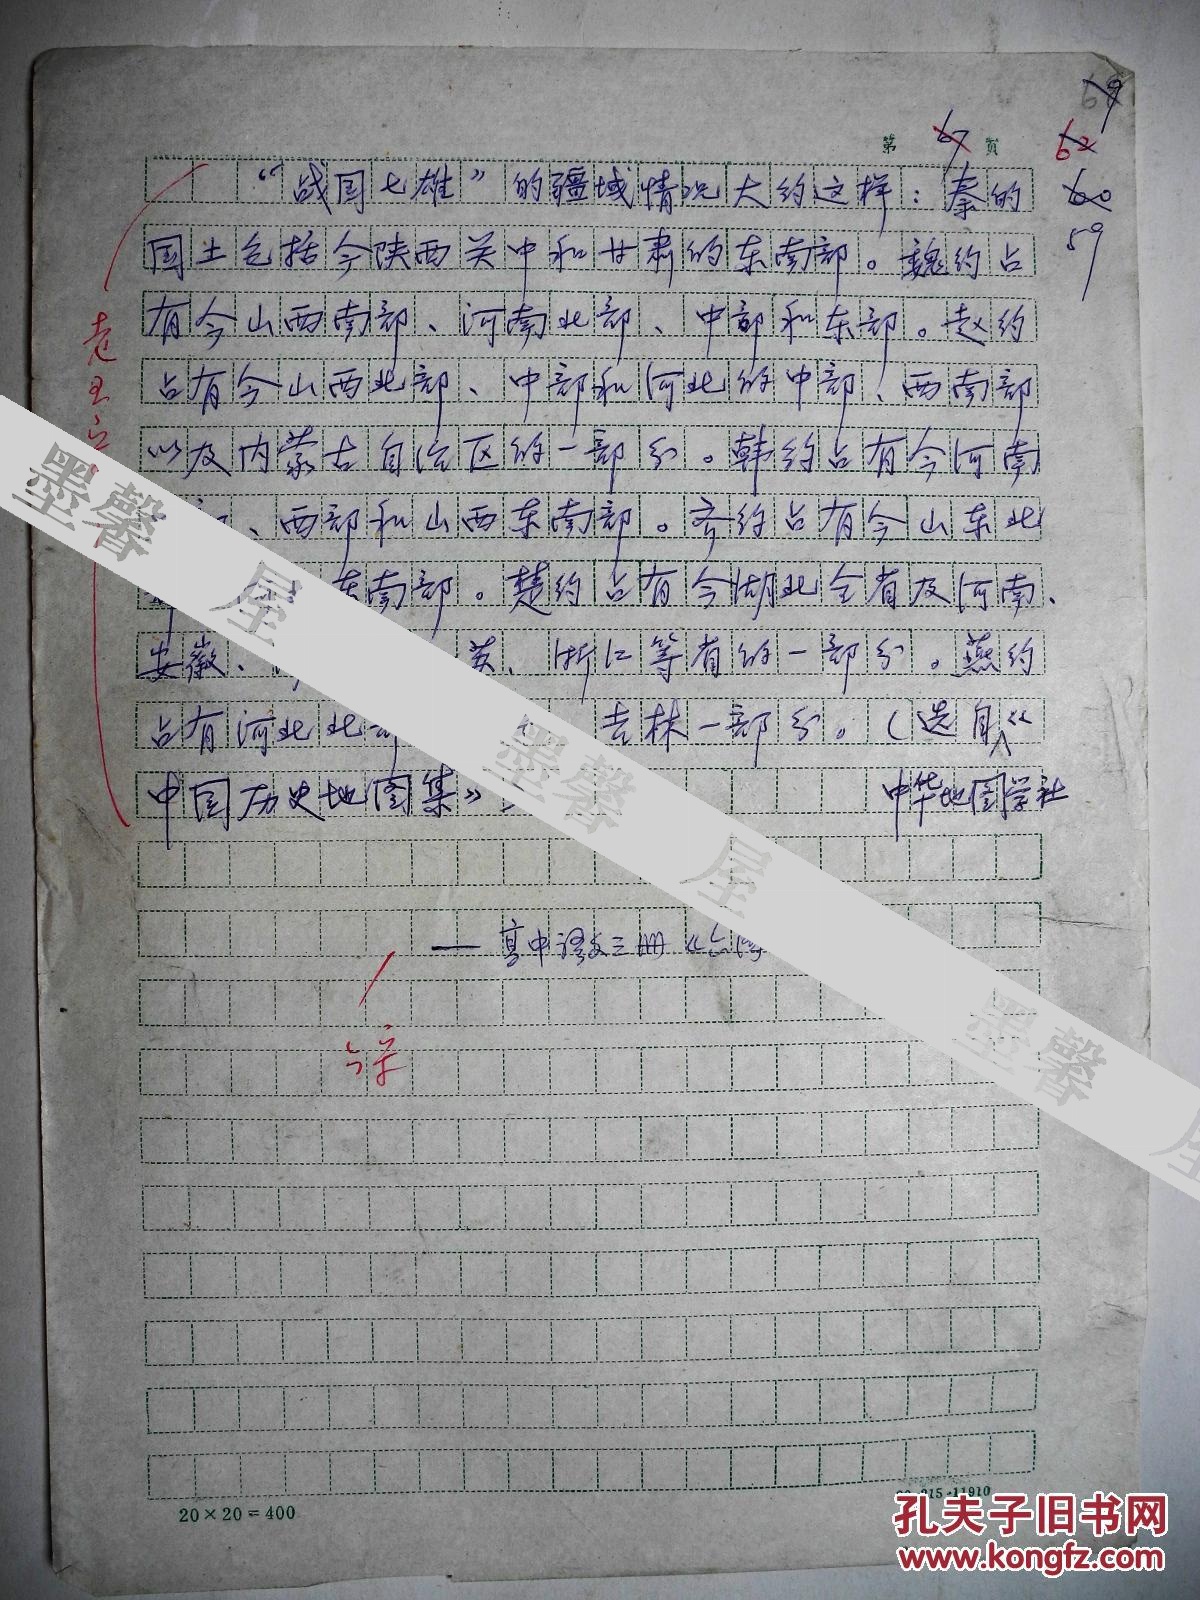 69
第 67 页 62
“战国七雄”的疆域情况大约这样：秦的 60
国土包括今陕西关中和甘肃的东南部。魏约占 59
有今山西南部、河南北部、中部和东部。赵约
占有今山西北部、中部和河北的中部、西南部
以及内蒙古自治区的一部分。韩约占有今河南
、西部和山西东南部。齐约占有今山东北
东南部。楚约占有今湖北全省及河南、
安徽、 苏、浙江等省的一部分。燕约
占有河北北部 吉林一部分。（选自《
中国历史地图集》 中华地图学社
— 高中语文三册《
老五宋
六宋
20×20=400
墨馨屋
墨馨屋
墨馨屋
孔夫子旧书网
www.kongfz.com